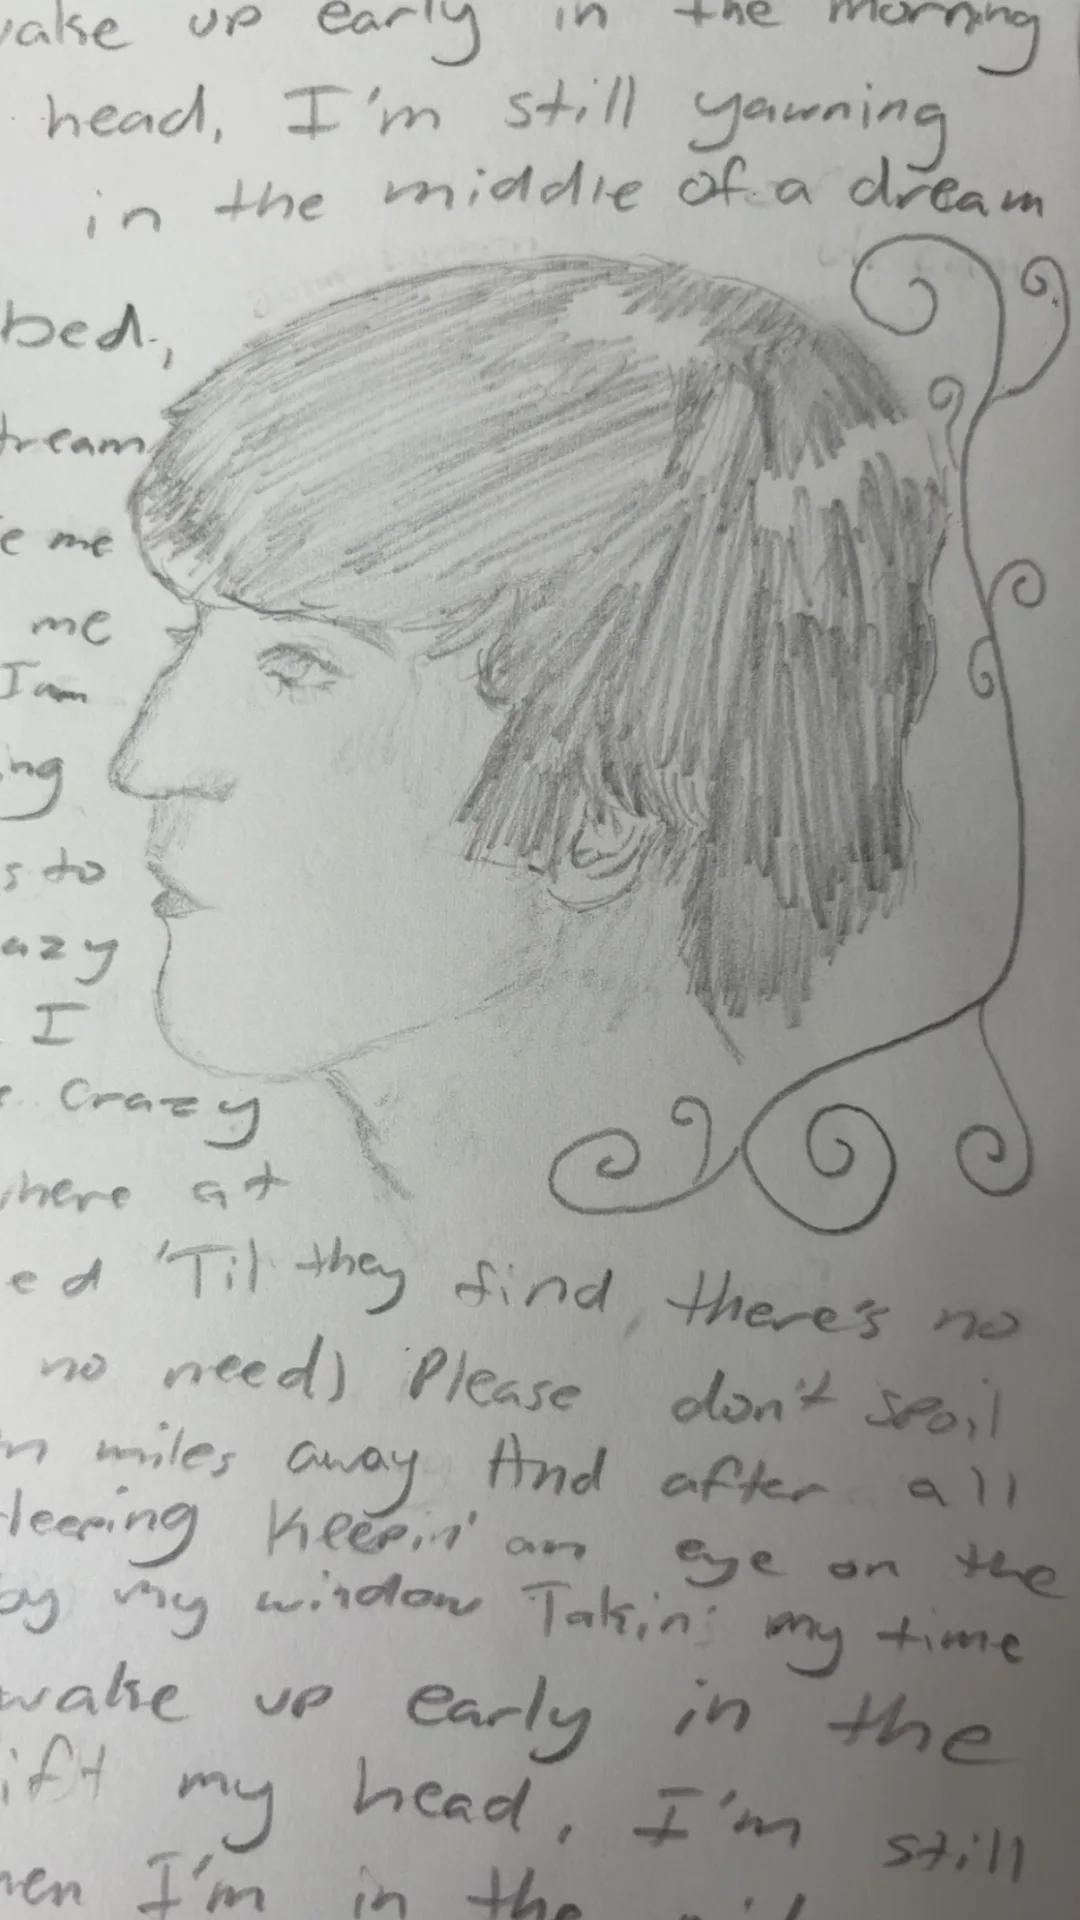 wake up early in the morning
head, I'm still yawning
in the middle of a dream
bed,
tream
e me
me
I am
ing
s to
azy
I
crazy
where at
ed 'Til they find, there's no
no need) Please don't spoil
m miles away And after all
leeping Keepin' an eye on the
by my window Takin' my time
wake up early in the
ift my head, I'm still
hen I'm in the